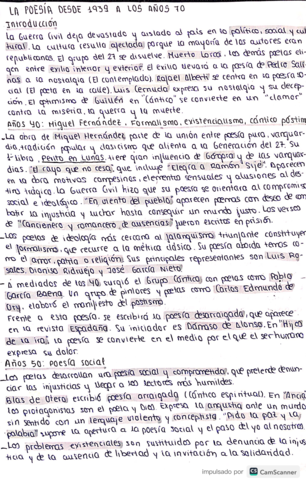 LA POESÍA DESDE 1939 A LOS AÑOS 70
Introducción
La Guerra Civil deja devastado y aislado al país en lo político, social y cul
tural. La cultura resulta afectada porque la mayoría de los autores eran
republicanos. El grupo del 27 se disuelve. Muerto Lorca, los demás poetas eli-
gen entre exilio interior y exterior. El exilio llevará a la poesía de Pedro Sali
nas a la nostalgia (El contemplado). Rafael Alberti se centra en la poesía so
cial (El poeta en la calle). Luis Cernuda expresa su nostalgia y su decep-
ción. El optimismo de Guillén en Cántico se convierte en un "clamor"
contra la miseria, la guerra y la muerte.
Años 40: Miguel Hernández, Formalismo, existencialismo, cómico póstimo
-La obra de Miguel Hernández parte de la unión entre poesía pura, vanguar-
dia, tradición popular y clasicismo que alienta a la Generación del 27. Su
1º libro, Perito en Lunas, tiene gran influencia de Góngora y de las vanguar-
dias. "El rayo que no cesa", que incluye "Elegía a Ramón Sijé", aparecen
en la obra motivos campesinos, elementos sensuales y alusiones al des-
tino trágico. La Guerra Civil hizo que su poesía se orientara al compromiso
social e ideológico. "En viento del pueblo" aparecen poemas con deseo de com
batir la injusticia y luchar hasta conseguir un mundo justo. Los versos
de "Cancionero y romancero de ausencias" fueron escritos en prisión.
-Los poetas de ideología más cercana al falangismo triunfante constituyen
el formalismo que recurre a la métrica clásica. Su poesía aborda temas co-
mo el amor, patria o religión. Sus principales representantes son Luis Ro-
sales, Dionisio Ridruejo y José García Nieto
-A mediados de los 40 surgió el Grupo Cántico, con poetas como Pablo
García Baena. Un grupo de pintores y poetas como Carlos Edmundo de
Ory, elaboró el manifiesto del postismo.
Frente a esta poesía, se escribirá la poesía desarraigada, que aparece
en la revista Espadaña. Su iniciador es Dámaso de Alonso. En "Hijos
de la ira", la poesía se convierte en el medio por el que el ser humano
expresa su dolor.
Años 50: poesía social
-Los poetas desarrollan una poesía social y comprometida, que pretende denun-
ciar las injusticias y llegar a los lectores más humildes.
Blas de Otero escribió poesía arraigada (Cántico espiritual). En "Ancia"
los protagonistas son el poeta y Dios. Expresa la angustia ante un mundo
sin sentido con un lenguaje violento y conceptista. "Pido la paz y la
palabra" supone la apertura a la poesía social y el paso del yo al nosotros.
-Los problemas existenciales son sustituidos por la denuncia de la injus
ticia y de la ausencia de libertad y la invitación a la solidaridad.
Impulsado por CS CamScanner